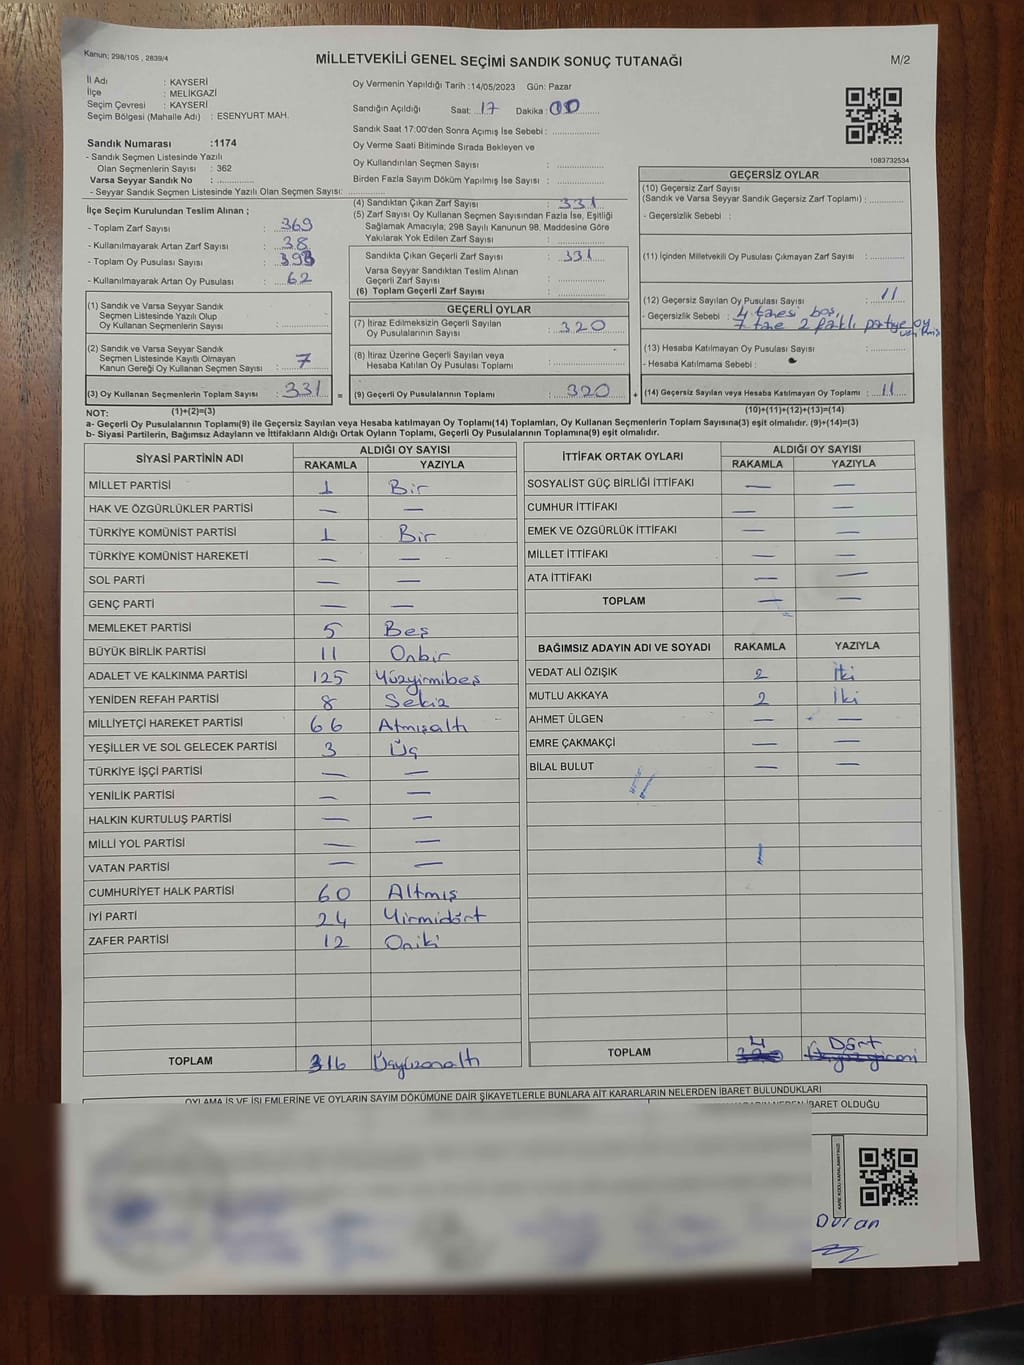 Kanun; 298/105 , 2839/4
MİLLETVEKİLİ GENEL SEÇİMİ SANDIK SONUÇ TUTANAĞI
M/2
İl Adı : KAYSERİ
İlçe : MELİKGAZİ
Seçim Çevresi : KAYSERİ
Seçim Bölgesi (Mahalle Adı) : ESENYURT MAH.
Sandık Numarası :1174
- Sandık Seçmen Listesinde Yazılı
Olan Seçmenlerin Sayısı : 362
Varsa Seyyar Sandık No :
- Seyyar Sandık Seçmen Listesinde Yazılı Olan Seçmen Sayısı:
Oy Vermenin Yapıldığı Tarih :14/05/2023 Gün: Pazar
Sandığın Açıldığı Saat: 17 Dakika : 00
Sandık Saat 17:00'den Sonra Açımış İse Sebebi :
Oy Verme Saati Bitiminde Sırada Bekleyen ve
Oy Kullandırılan Seçmen Sayısı :
Birden Fazla Sayım Döküm Yapılmış İse Sayısı :
1083732534
İlçe Seçim Kurulundan Teslim Alınan ;
- Toplam Zarf Sayısı : 369
- Kullanılmayarak Artan Zarf Sayısı : 38
- Toplam Oy Pusulası Sayısı : 393
- Kullanılmayarak Artan Oy Pusulası : 62
(1) Sandık ve Varsa Seyyar Sandık
Seçmen Listesinde Yazılı Olup
Oy Kullanan Seçmenlerin Sayısı :
(2) Sandık ve Varsa Seyyar Sandık
Seçmen Listesinde Kayıtlı Olmayan
Kanun Gereği Oy Kullanan Seçmen Sayısı : 7
(3) Oy Kullanan Seçmenlerin Toplam Sayısı : 331 =
(4) Sandıktan Çıkan Zarf Sayısı : 331
(5) Zarf Sayısı Oy Kullanan Seçmen Sayısından Fazla İse, Eşitliği
Sağlamak Amacıyla; 298 Sayılı Kanunun 98. Maddesine Göre
Yakılarak Yok Edilen Zarf Sayısı :
Sandıkta Çıkan Geçerli Zarf Sayısı : 331
Varsa Seyyar Sandıktan Teslim Alınan
Geçerli Zarf Sayısı :
(6) Toplam Geçerli Zarf Sayısı :
GEÇERLİ OYLAR
(7) İtiraz Edilmeksizin Geçerli Sayılan
Oy Pusulalarının Sayısı : 320
(8) İtiraz Üzerine Geçerli Sayılan veya
Hesaba Katılan Oy Pusulası Toplamı :
(9) Geçerli Oy Pusulalarının Toplamı : 320 +
GEÇERSİZ OYLAR
(10) Geçersiz Zarf Sayısı
(Sandık ve Varsa Seyyar Sandık Geçersiz Zarf Toplamı) :
- Geçersizlik Sebebi :
(11) İçinden Milletvekili Oy Pusulası Çıkmayan Zarf Sayısı :
(12) Geçersiz Sayılan Oy Pusulası Sayısı : 11
- Geçersizlik Sebebi : 4 tanesi boş,
7 tane 2 farklı partiye oy
(13) Hesaba Katılmayan Oy Pusulası Sayısı :
- Hesaba Katılmama Sebebi :
(14) Geçersiz Sayılan veya Hesaba Katılmayan Oy Toplamı : 11
NOT: (1)+(2)=(3)
(10)+(11)+(12)+(13)=(14)
a- Geçerli Oy Pusulalarının Toplamı(9) ile Geçersiz Sayılan veya Hesaba katılmayan Oy Toplamı(14) Toplamları, Oy Kullanan Seçmenlerin Toplam Sayısına(3) eşit olmalıdır. (9)+(14)=(3)
b- Siyasi Partilerin, Bağımsız Adayların ve İttifakların Aldığı Ortak Oyların Toplamı, Geçerli Oy Pusulalarının Toplamına(9) eşit olmalıdır.
SİYASİ PARTİNİN ADI
ALDIĞI OY SAYISI
RAKAMLA YAZIYLA
MİLLET PARTİSİ 1 Bir
HAK VE ÖZGÜRLÜKLER PARTİSİ — —
TÜRKİYE KOMÜNİST PARTİSİ 1 Bir
TÜRKİYE KOMÜNİST HAREKETİ — —
SOL PARTİ — —
GENÇ PARTİ — —
MEMLEKET PARTİSİ 5 Beş
BÜYÜK BİRLİK PARTİSİ 11 Onbir
ADALET VE KALKINMA PARTİSİ 125 Yüzyirmibeş
YENİDEN REFAH PARTİSİ 8 Sekiz
MİLLİYETÇİ HAREKET PARTİSİ 66 Atmışaltı
YEŞİLLER VE SOL GELECEK PARTİSİ 3 Üç
TÜRKİYE İŞÇİ PARTİSİ — —
YENİLİK PARTİSİ — —
HALKIN KURTULUŞ PARTİSİ — —
MİLLİ YOL PARTİSİ — —
VATAN PARTİSİ — —
CUMHURİYET HALK PARTİSİ 60 Altmış
İYİ PARTİ 24 Yirmidört
ZAFER PARTİSİ 12 Oniki
TOPLAM 316 Üçyüzonaltı
İTTİFAK ORTAK OYLARI
ALDIĞI OY SAYISI
RAKAMLA YAZIYLA
SOSYALİST GÜÇ BİRLİĞİ İTTİFAKI — —
CUMHUR İTTİFAKI — —
EMEK VE ÖZGÜRLÜK İTTİFAKI — —
MİLLET İTTİFAKI — —
ATA İTTİFAKI — —
TOPLAM — —
BAĞIMSIZ ADAYIN ADI VE SOYADI RAKAMLA YAZIYLA
VEDAT ALİ ÖZIŞIK 2 İki
MUTLU AKKAYA 2 İki
AHMET ÜLGEN — —
EMRE ÇAKMAKÇİ — —
BİLAL BULUT — —
TOPLAM 4 Dört
OYLAMA İŞ VE İŞLEMLERİNE VE OYLARIN SAYIM DÖKÜMÜNE DAİR ŞİKAYETLERLE BUNLARA AİT KARARLARIN NELERDEN İBARET BULUNDUKLARI
İBARET OLDUĞU
Duran